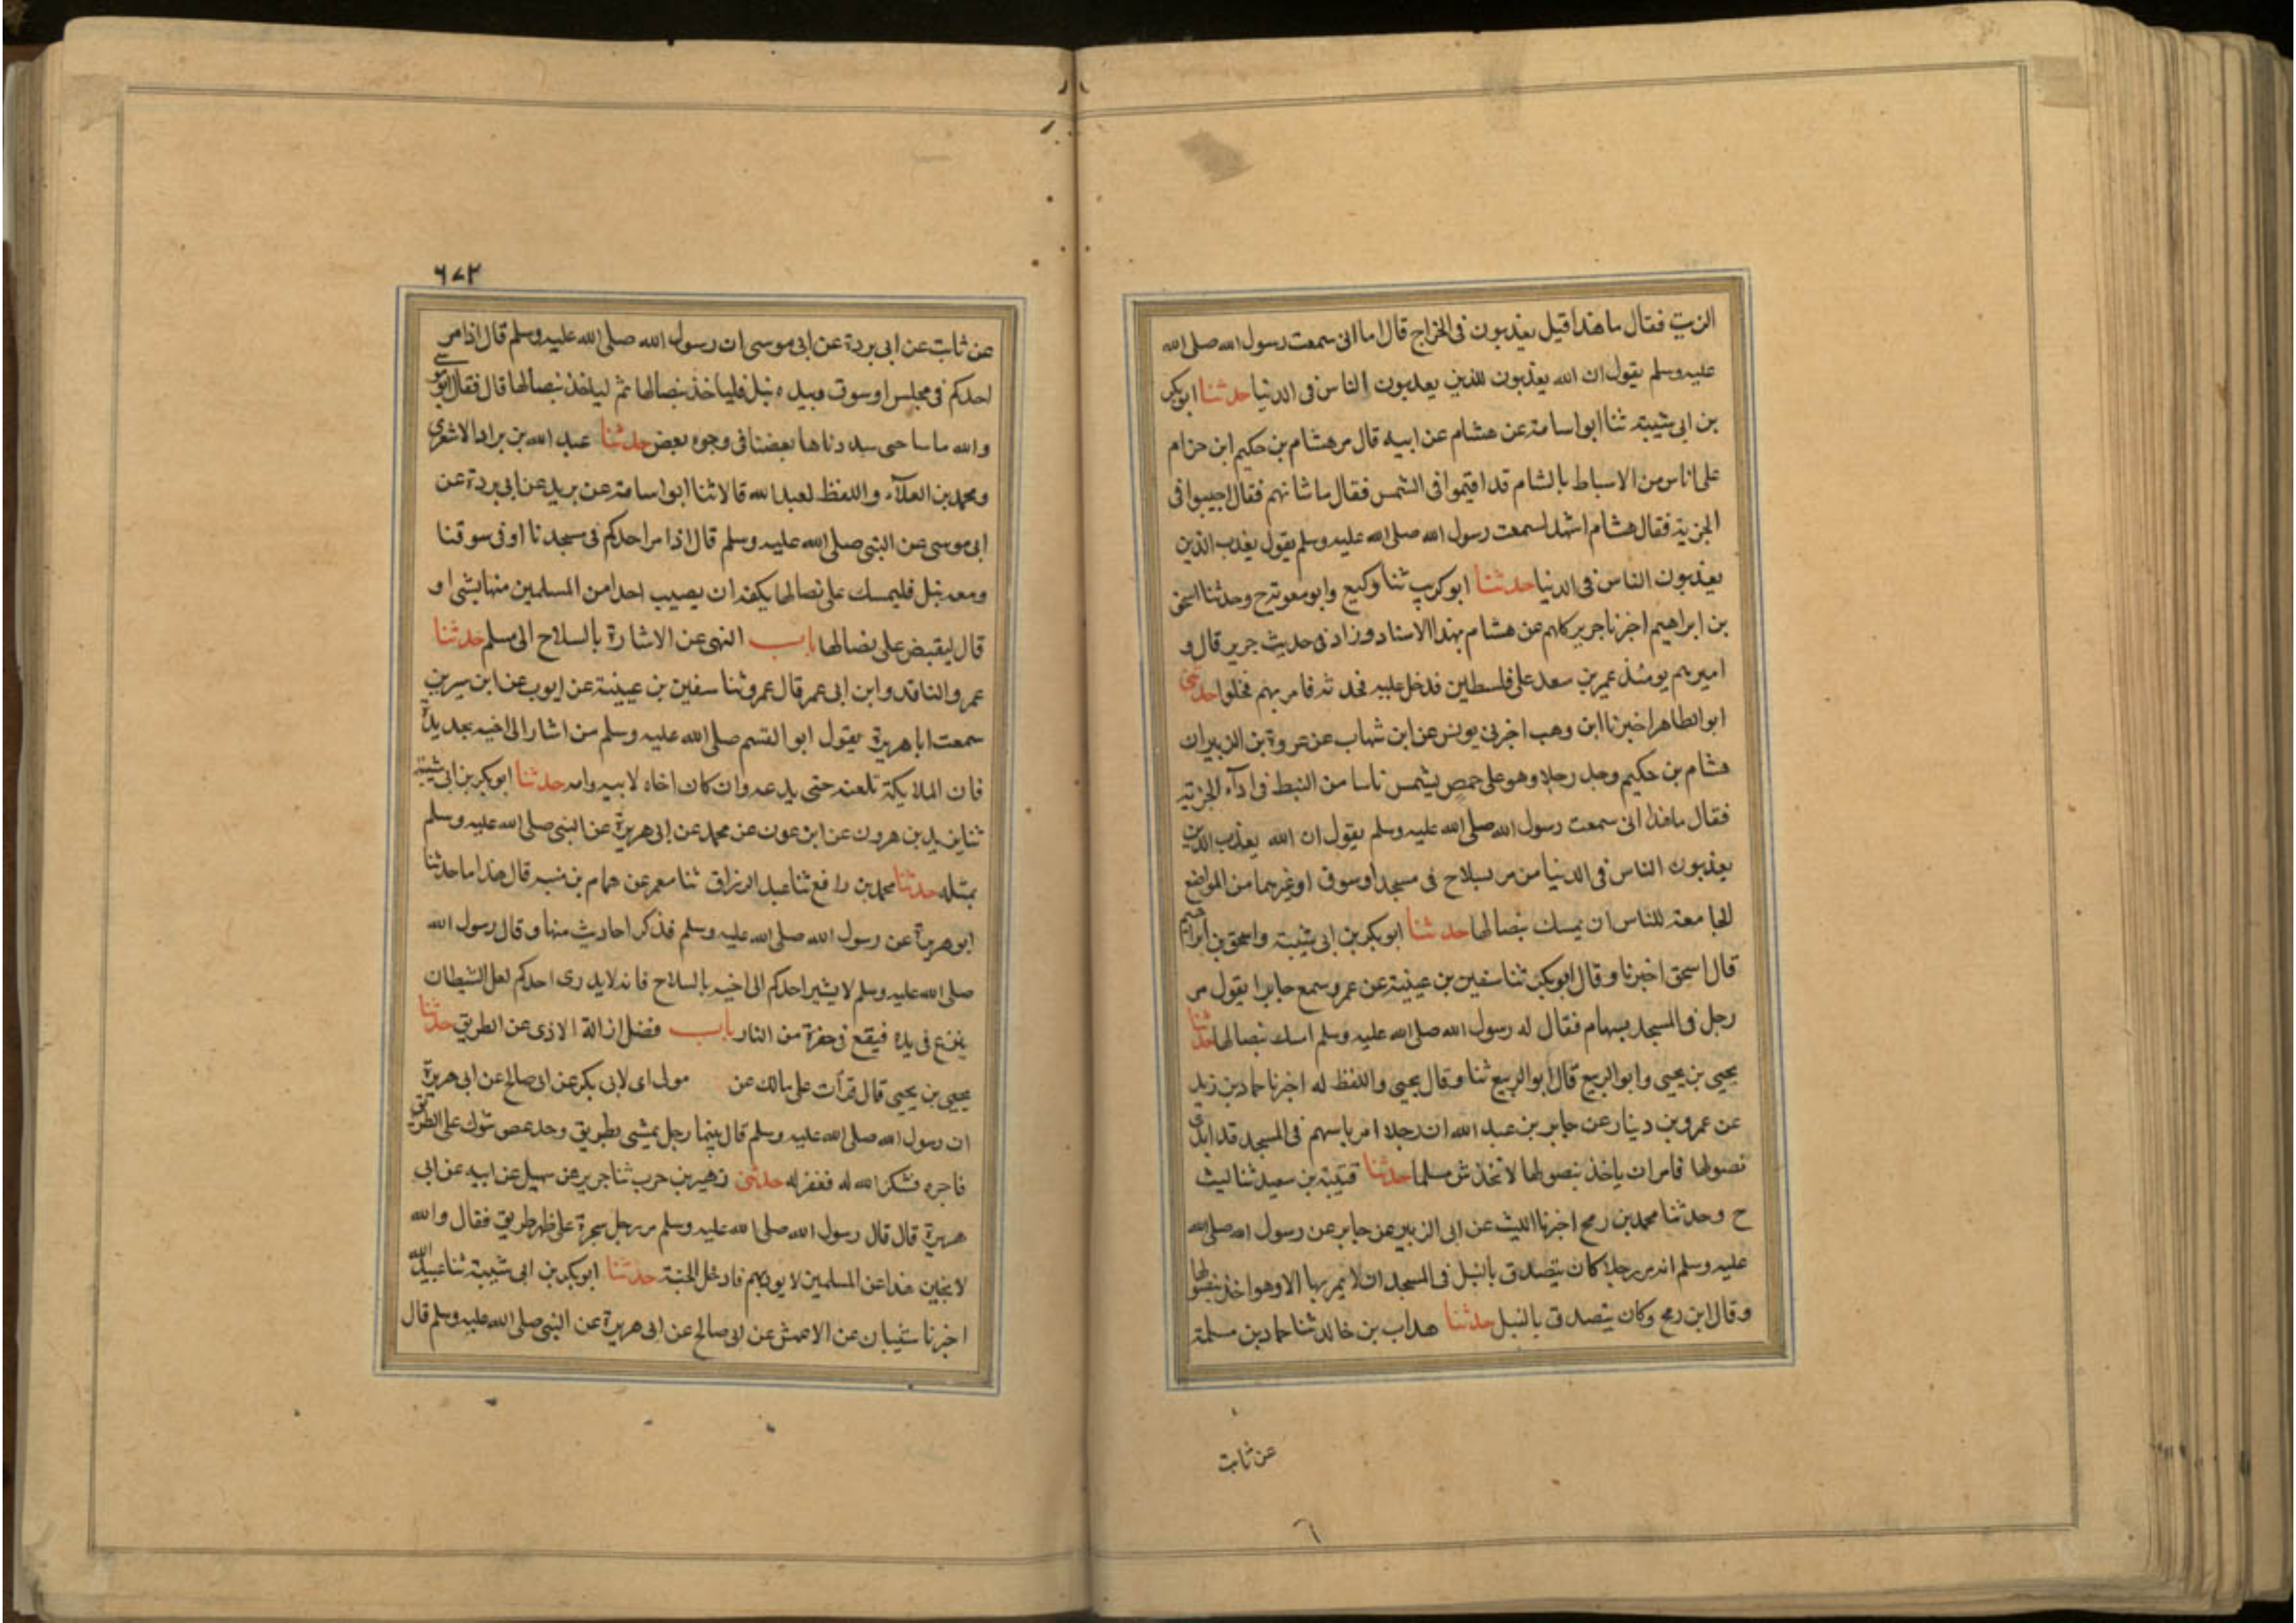 الزيت فقال ما هذا قيل يعذبون فى الخراج قال اما انى سمعت رسول الله صلى الله
عليه وسلم يقول ان الله يعذبون للذين يعذبون الناس فى الدنيا حدثنا ابو بكر
بن ابى شيبة ثنا ابو اسامة عن هشام عن ابيه قال مر هشام بن حكيم ابن حزام
على اناس من الاسباط بالشام قد اقيموا فى الشمس فقال ما شانهم فقال اجيبوا فى
الجزية فقال هشام اشهد لسمعت رسول الله صلى الله عليه وسلم يقول يعذب الذين
يعذبون الناس فى الدنيا حدثنا ابو كريب ثنا وكيع وابو معوية ح وحدثنا اسحق
بن ابراهيم اخبرنا جرير كلهم عن هشام بهذا الاسناد وزاد فى حديث جرير قال و
اميرهم يومئذ عمير بن سعد على فلسطين فدخل عليه فحدثه فامر بهم فخلوا حدثنى
ابو الطاهر اخبرنا ابن وهب اخبرنى يونس عن ابن شهاب عن عروة بن الزبير ان
هشام بن حكيم وجد رجلا وهو على حمص يشمس ناسا من النبط فى ادآء الجزية
فقال ما هذا انى سمعت رسول الله صلى الله عليه وسلم يقول ان الله يعذب الذين
يعذبون الناس فى الدنيا من مر بسلاح فى مسجد او سوق او غيرهما من المواضع
الجامعة للناس ان يمسك بنصالها حدثنا ابو بكر بن ابى شيبة واسحق بن ابراهيم
قال اسحق اخبرنا وقال ابو بكر ثنا سفين بن عيينة عن عمرو سمع جابرا يقول مر
رجل فى المسجد بسهام فقال له رسول الله صلى الله عليه وسلم امسك بنصالها حدثنا
يحيى بن يحيى وابو الربيع قال ابو الربيع ثنا وقال يحيى واللفظ له اخبرنا حماد بن زيد
عن عمرو بن دينار عن جابر بن عبد الله ان رجلا امر باسهم فى المسجد قد ابدى
نصولها فامر ان ياخذ بنصولها لا تخدش مسلما حدثنا قتيبة بن سعيد ثنا ليث
ح وحدثنا محمد بن رمح اخبرنا الليث عن ابى الزبير عن جابر عن رسول الله صلى الله
عليه وسلم انه مر رجلا كان يتصدق بالنبل فى المسجد ان لا يمر بها الا وهو اخذ بنصولها
وقال ابن رمح وكان يتصدق بالنبل حدثنا هداب بن خالد ثنا حماد بن مسلمة
عن ثابت
٦
٦٧٢
عن ثابت عن ابى بردة عن ابى موسى ان رسول الله صلى الله عليه وسلم قال اذا مر
احدكم فى مجلس او سوق وبيده نبل فلياخذ بنصالها ثم لياخذ بنصالها قال فقال ابو موسى
والله ما سددناها بعضنا فى وجوه بعض حدثنا عبد الله بن براد الاشعرى
ومحمد بن العلآء واللفظ لعبد الله قالا ثنا ابو اسامة عن بريد عن ابى بردة عن
ابى موسى عن النبى صلى الله عليه وسلم قال اذا مر احدكم فى مسجدنا او فى سوقنا
ومعه نبل فليمسك على نصالها بكفه ان يصيب احدا من المسلمين منها بشى او
قال ليقبض على نصالها باب النهى عن الاشارة بالسلاح الى مسلم حدثنا
عمرو الناقد وابن ابى عمر قال عمرو ثنا سفين بن عيينة عن ايوب عن ابن سيرين
سمعت ابا هريرة يقول ابو القسم صلى الله عليه وسلم من اشار الى اخيه بحديدة
فان الملايكة تلعنه حتى يدعه وان كان اخاه لابيه وامه حدثنا ابو بكر بن ابى شيبة
ثنا يزيد بن هرون عن ابن عون عن محمد عن ابى هريرة عن النبى صلى الله عليه وسلم
بمثله حدثنا محمد بن رافع ثنا عبد الرزاق ثنا معمر عن همام بن منبه قال هذا ما حدثنا
ابو هريرة عن رسول الله صلى الله عليه وسلم فذكر احاديث منها وقال رسول الله
صلى الله عليه وسلم لا يشير احدكم الى اخيه بالسلاح فانه لا يدرى احدكم لعل الشيطان
ينزع فى يده فيقع فى حفرة من النار باب فضل ازالة الاذى عن الطريق حدثنا
يحيى بن يحيى قال قرأت على مالك عن مولى اى لابى بكر عن ابى صالح عن ابى هريرة
ان رسول الله صلى الله عليه وسلم قال بينما رجل يمشى بطريق وجد غصن شوك على الطريق
فاخره فشكر الله له فغفر له حدثنى زهير بن حرب ثنا جرير عن سهيل عن ابيه عن ابى
هريرة قال قال رسول الله صلى الله عليه وسلم مر رجل بشجرة على ظهر طريق فقال والله
لا نحين هذا عن المسلمين لا يوذيهم فادخل الجنة حدثنا ابو بكر بن ابى شيبة ثنا عبيد الله
اخبرنا شيبان عن الاعمش عن ابى صالح عن ابى هريرة عن النبى صلى الله عليه وسلم قال